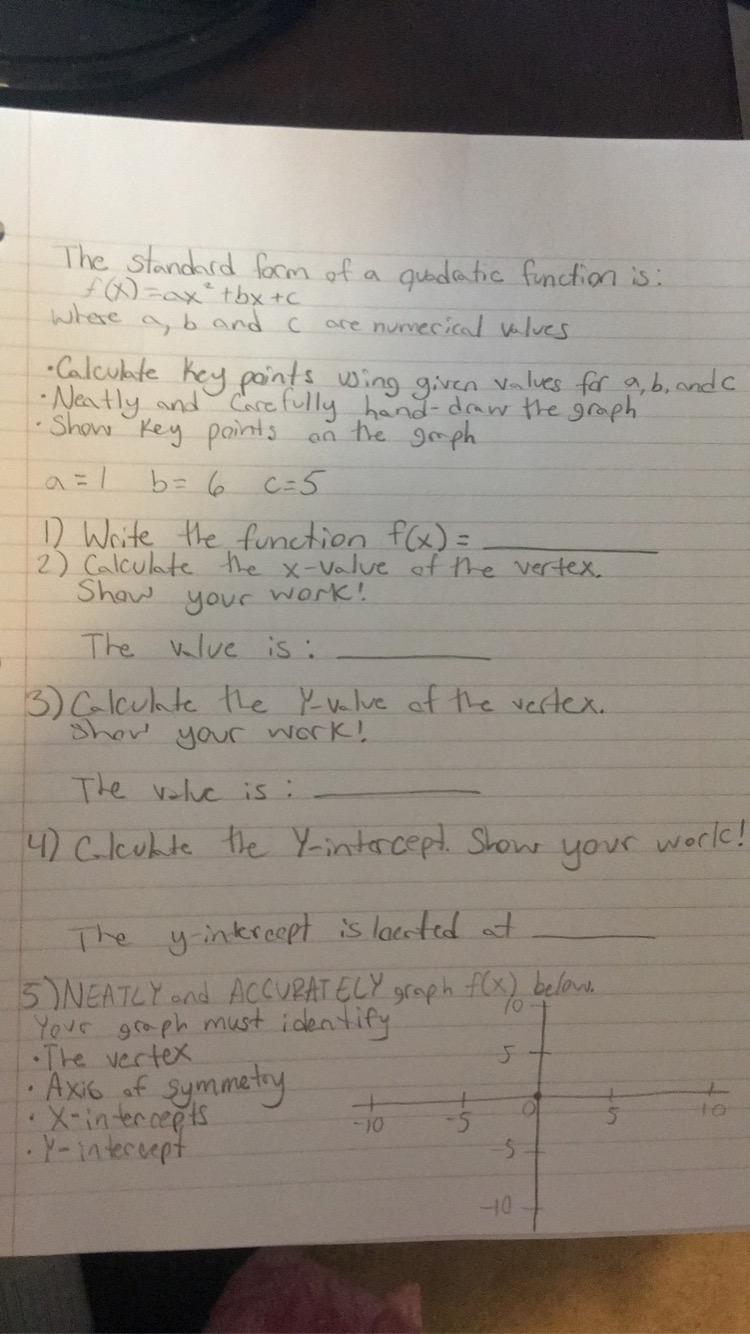 The standard form of a quadratic function is:
f(x)=ax²+bx+c
Where a, b and c are numerical values
•Calculate Key points using given values for a, b, and c
•Neatly and Carefully hand-draw the graph
•Show Key points on the graph
a=1 b=6 c=5
1) Write the function f(x)= ________
2) Calculate the x-value of the vertex.
Show your work!
The value is: ________
3) Calculate the Y-value of the vertex.
Show your work!
The value is: ________
4) Calculate the Y-intercept. Show your work!
The y-intercept is located at ________
5) NEATLY and ACCURATELY graph f(x) below.
Your graph must identify
•The vertex
•Axis of symmetry
•X-intercepts
•Y-intercept
10
5
-10 -5 0 5 10
-5
-10